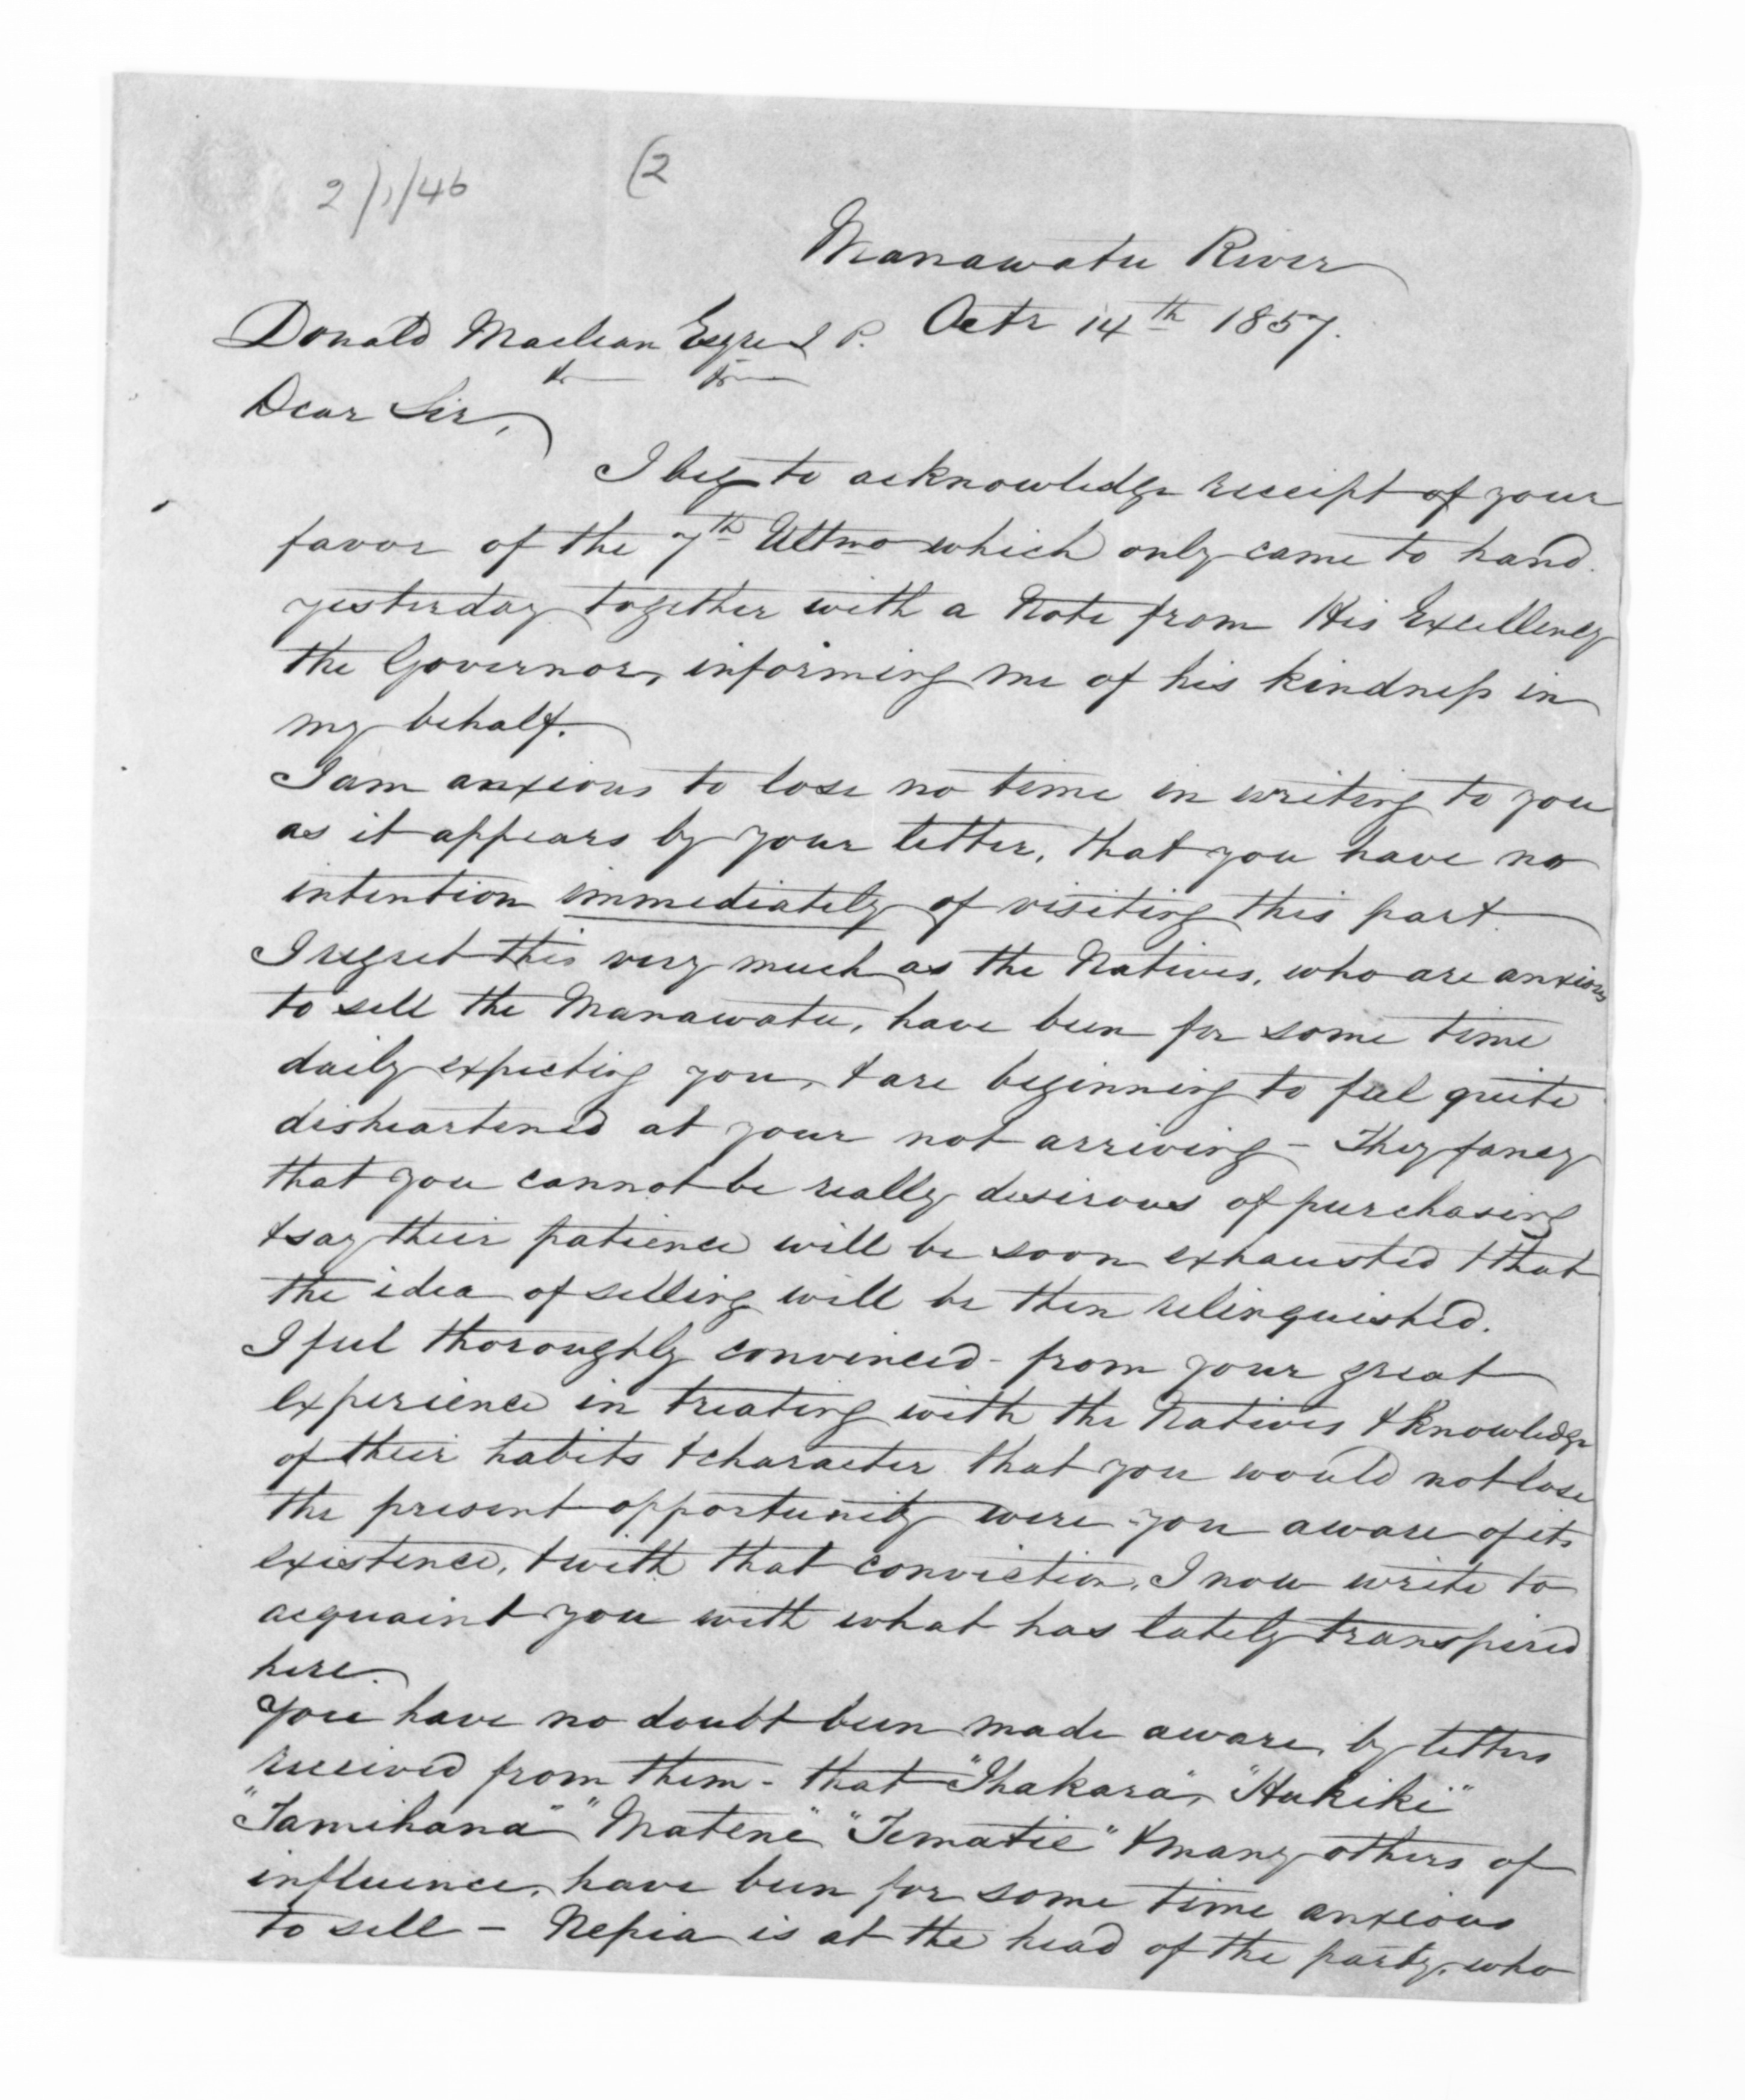 2/1/46 (2
Manawatu River
Octr 14th 1857.
Donald Maclean Esqre J P.
&— &—
Dear Sir,
I beg to acknowledge receipt of your
favor of the 7th Ultmo which only came to hand.
yesterday together with a Note from His Excellency
the Governor, informing me of his kindness in
my behalf.
I am anxious to lose no time in writing to you
as it appears by your letter, that you have no
intention immediately of visiting this part.
I regret this very much as the Natives, who are anxious
to sell the Manawatu, have been for some time
daily expecting you, & are beginning to feel quite
disheartened at your not arriving - They fancy
that you cannot be really desirous of purchasing
& say their patience will be soon exhausted & that
the idea of selling will be then relinquished.
I feel thoroughly convinced - from your great
experience in treating with the Natives & knowledge
of their habits & character that you would not lose
the present opportunity were you aware of its
existence, & with that conviction, I now write to
acquaint you with what has lately transpired
here.
You have no doubt been made aware, by letters
received from them - that "Ihakara", "Hukiki"
"Tamihana" "Matene" "Tematie" & many others of
influence, have been for some time anxious
to sell - Nepia is at the head of the party, who